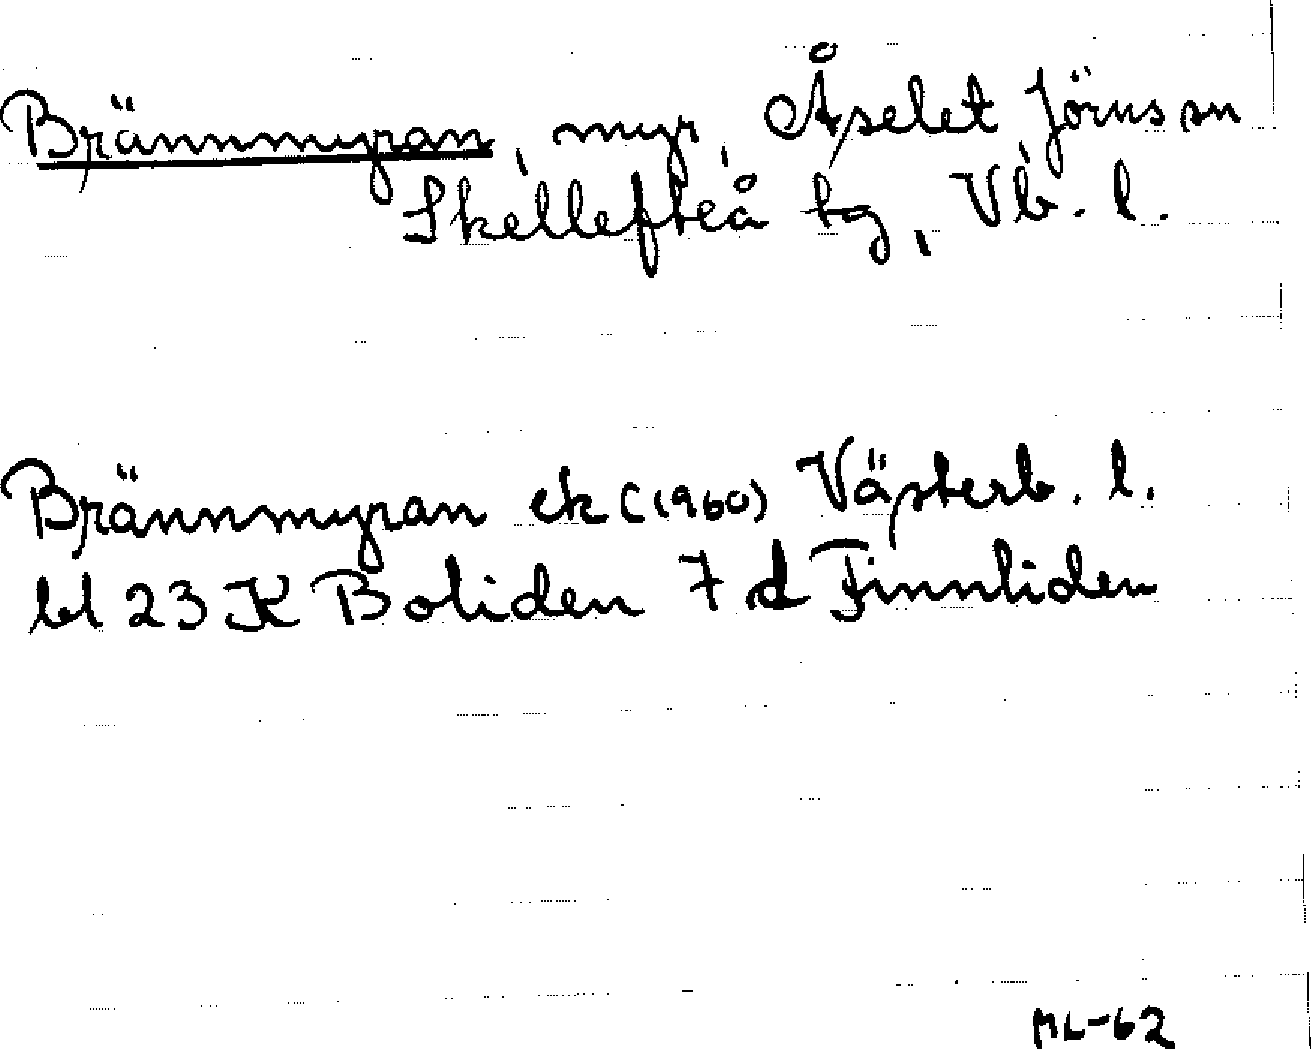 Brännmyran, myr, Åselet Jörns sn
Skellefteå tg, Vb. l.
Brännmyran ek (1960) Västerb. l.
bl 23 K Boliden 7 d Finnliden
ML-62